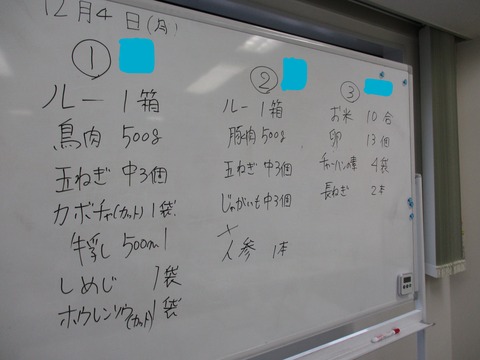 12月4日(月)
①
ルー 1箱
鳥肉 500g
玉ねぎ 中3個
カボチャ(カット) 1袋
牛乳 500ml
しめじ 1袋
ホウレンソウ(カット) 1袋
②
ルー 1箱
豚肉 500g
玉ねぎ 中3個
じゃがいも 中3個
人参 1本
③
お米 10合
卵 13個
チャーハンの素 4袋
長ねぎ 2本